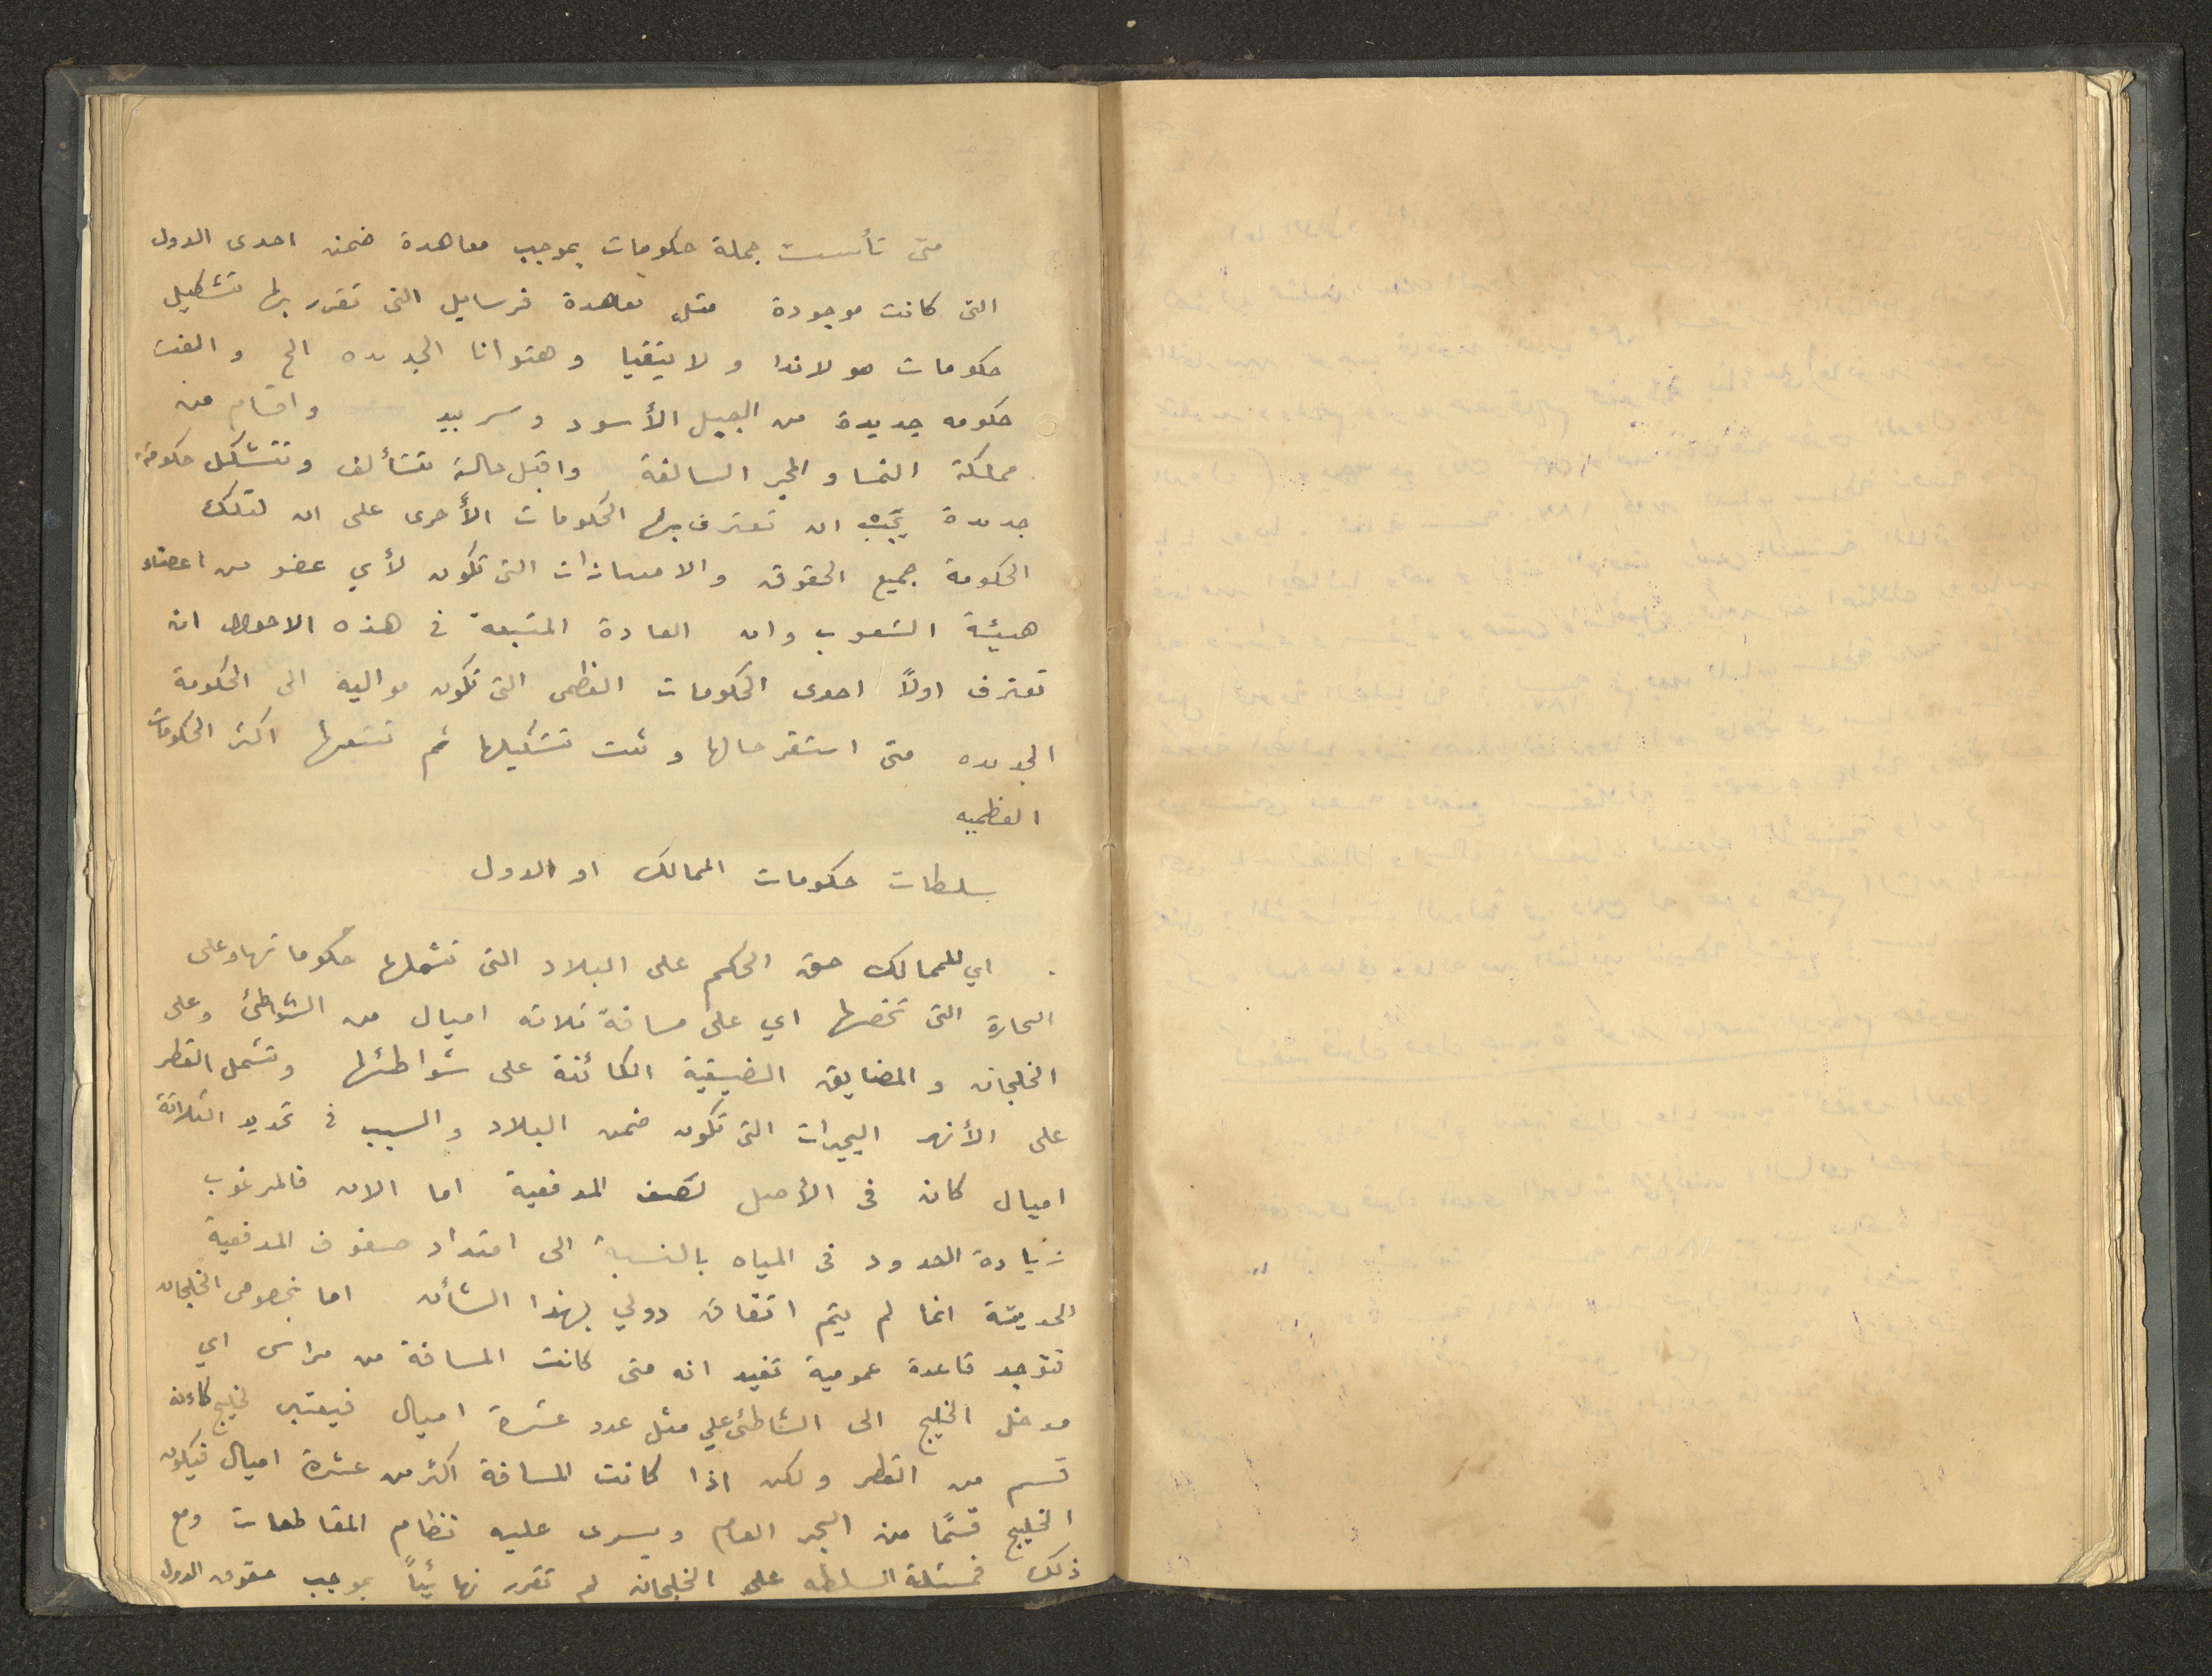 متى تأسست جملة حكومات بموجب معاهدة ضمن احدى الدول
التى كانت موجودة مثل معاهدة فرسايل التى تقرر بها تشكيل
حكومات هولاندا ولاتيفيا وهتوانا الجديده الخ والفت
حكومه جديدة من الجبل الأسود وسربيه واقسام من
مملكة النمسا والمجر السالفة واقبل حالة تتألف وتتشكل حكومة
جديدة يجب ان تعترف بها الحكومات الأخرى على ان لتلك
الحكومة جميع الحقوق والامتيازات التى تكون لأي عضو من اعضاء
هيئة الشعوب وان العادة المتبعة فى هذه الاحوال ان
تعترف اولاً احدى الحكومات العظمى التى تكون مواليه الى الحكومة
الجديده متى استقر حالها وثبت تشكيلها ثم تتبعها اكثر الحكومات
العظميه
سلطات حكومات الممالك او الدول
اي للممالك حق الحكم على البلاد التى تشملها حكوماتها وعلى
البحارة التى تخصها اي على مسافة ثلاثه اميال من الشواطئ وعلى
الخلجان والمضايق الضيقية الكائنة على شواطئها وتشمل القطر
على الأنهر البحيرات التى تكون ضمن البلاد والسبب فى تحديد الثلاثة
اميال كان فى الأصل لصف المدفعية اما الان فالمرغوب
زيادة الحدود فى المياه بالنسبة الى امتداد صفوف المدفعية
الحديثة انما لم يتم اتفاق دولي بهذا الشأن اما بخصوص الخلجان
فتوجد قاعدة عمومية تفيد انه متى كانت المسافة من مراس اي
مدخل الخليج الى الشاطئ علي مثل عدد عشرة اميال فيعتبر خليج كاءنه
قسم من القطر ولكن اذا كانت المسافة اكثر من عشرة اميال فيكون
الخليج قسمًا من البحر العام ويسرى عليه نظام المقاطعات ومع
ذلك فمسئلة السلطه على الخلجان لم تقرر نهائياً بموجب حقوق الدول